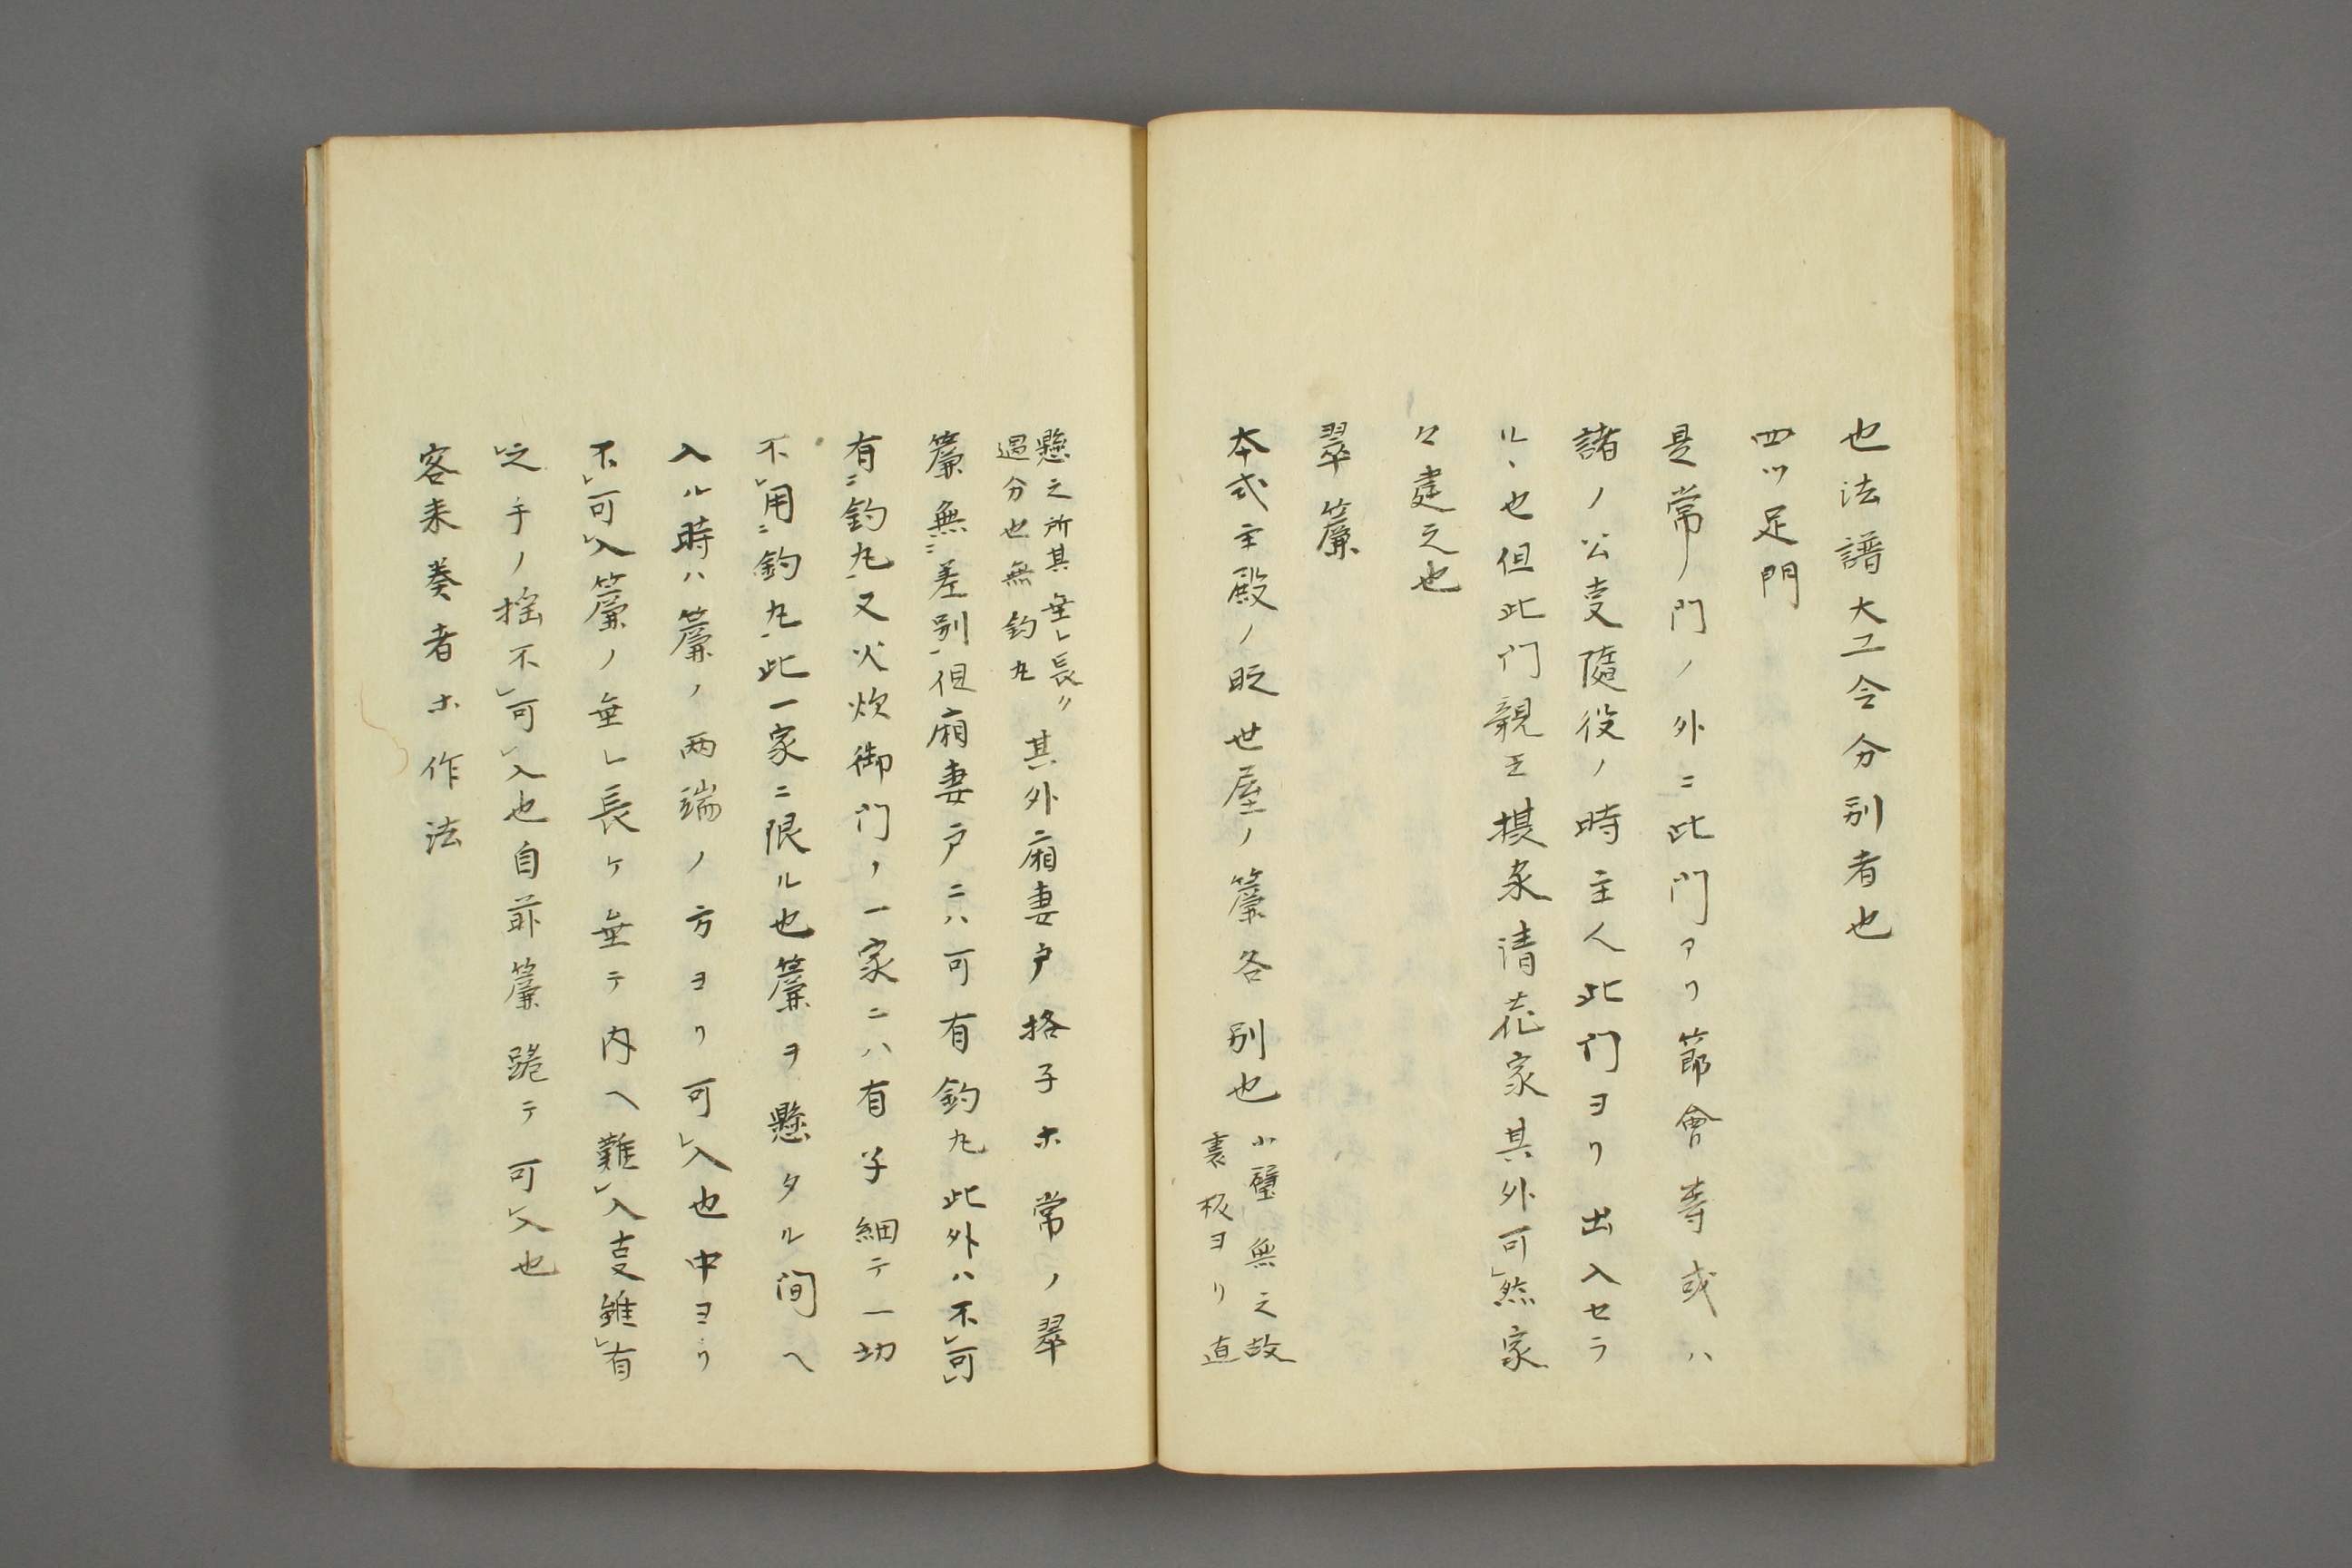 也法譜大工令分別者也
四ツ足門
是常ノ門ノ外ニ此門アリ節會等或ハ
諸ノ公事隨役ノ時主人此门ヨリ出入セラ
ルヽ也但此门親王摂家清花家其外可レ然家
々建之也
翠簾
本式主殿ノ昵世屋ノ簾各別也
小壁無之故
裏板ヨリ直
懸之所其垂レ長〃
過分也無釣丸
其外廂妻戸格子ホ常ノ翠
簾無二差別一但廂妻戸ニハ可有釣丸此外ハ不レ可
有二釣丸一又火炊御门ノ一家ニハ有子細テ一切
不レ用二釣丸一此一家ニ限ル也簾ヲ懸タル间ヘ
入ル時ハ簾ノ両端ノ方ヨリ可レ入也中ヨリ
不レ可レ入簾ノ垂レ長ケ垂テ内ヘ難レ入支雖レ有
レ之手ノ搖不レ可レ入也自前簾跪テ可レ入也
客来奏者ホ作法